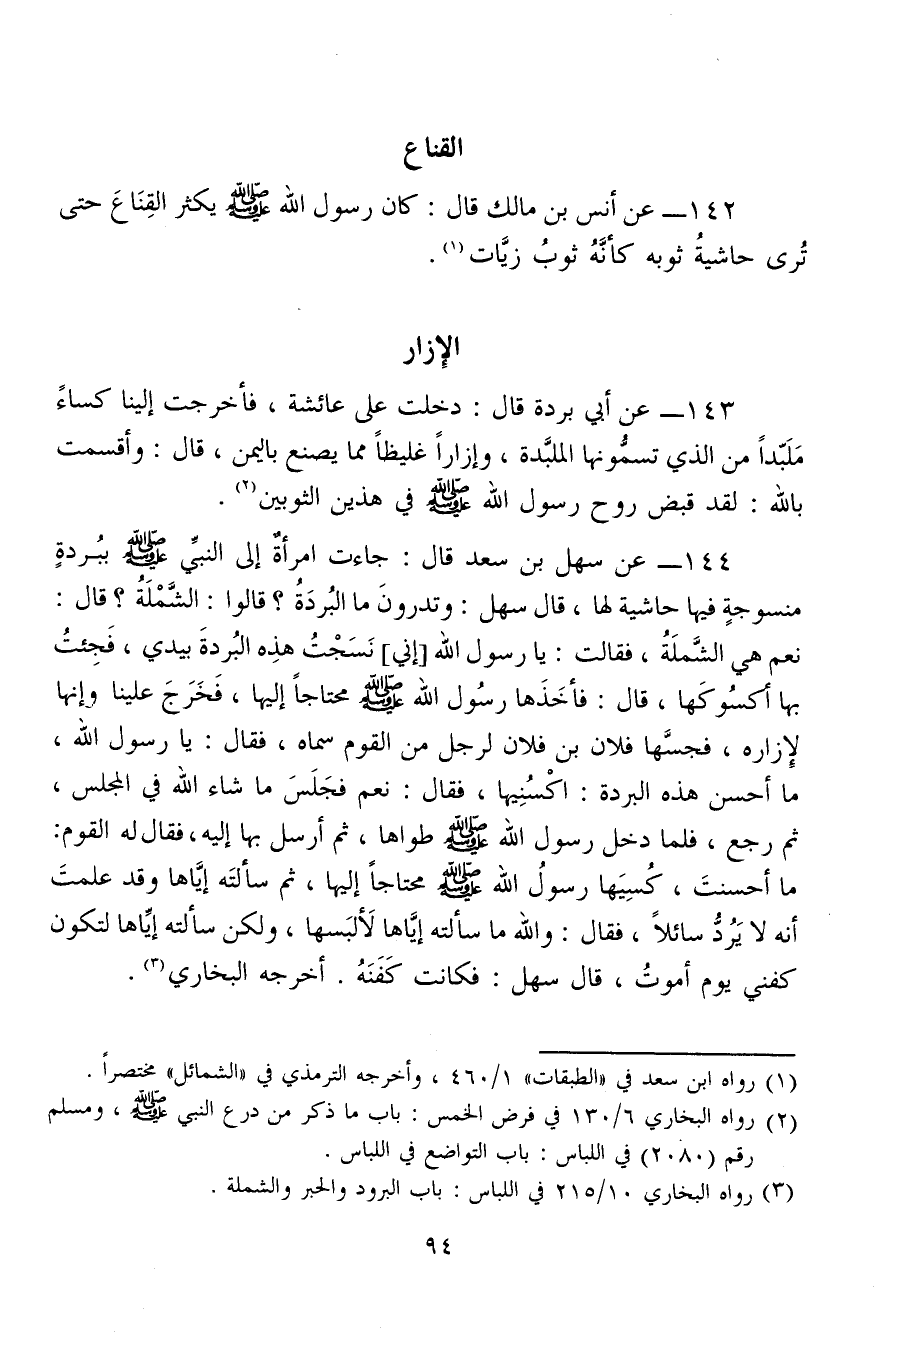 القناع
١٤٢ــ عن أنس بن مالك قال : كان رسول الله ﷺ يكثر القِنَاعَ حتى
تُرى حاشيةُ ثوبه كأنَّهُ ثوبُ زيَّات(١) .
الإزار
١٤٣ــ عن أبي بردة قال : دخلت على عائشة ، فأخرجت إلينا كساءً
مَلَبّداً من الذي تسمُّونها الملبَّدة ، وإزاراً غليظاً مما يصنع باليمن ، قال : وأقسمت
بالله : لقد قبض روح رسول الله ﷺ في هذين الثوبين(٢) .
١٤٤ــ عن سهل بن سعد قال : جاءت امرأةٌ إلى النبيِّ ﷺ ببُردةٍ
منسوجةٍ فيها حاشية لها ، قال سهل : وتدرونَ ما البُردَةُ ؟ قالوا : الشَّمْلَةُ ؟ قال :
نعم هي الشَّملَةُ ، فقالت : يا رسول الله [إني] نَسَجْتُ هذِه البُردةَ بيدي ، فَجِئتُ
بها أكسُوكَها ، قال : فأخَذَها رسُول الله ﷺ محتاجاً إليها ، فَخَرَجَ علينا وإنها
لإزاره ، فجسَّها فلان بن فلان لرجل من القوم سماه ، فقال : يا رسول الله ،
ما أحسن هذه البردة : اكْسُنِيها ، فقال : نعم فجَلَسَ ما شاء الله في المجلس ،
ثم رجع ، فلما دخل رسول الله ﷺ طواها ، ثم أرسل بها إليه، فقال له القوم:
ما أحسنتَ ، كُسِيَها رسولُ الله ﷺ محتاجاً إليها ، ثم سألتَه إيَّاها وقد علمتَ
أنه لا يَرُدُّ سائلاً ، فقال : والله ما سألته إيَّاها لَألبَسها ، ولكن سألته إيِّاها لتكون
كفني يوم أموتُ ، قال سهل : فكانت كَفَنَهُ . أخرجه البخاري(٣) .
(١) رواه ابن سعد في «الطبقات» ٤٦٠/١ ، وأخرجه الترمذي في «الشمائل» مختصراً .
(٢) رواه البخاري ١٣٠/٦ في فرض الخمس : باب ما ذكر من درع النبي ﷺ ، ومسلم
رقم (٢٠٨٠) في اللباس : باب التواضع في اللباس .
(٣) رواه البخاري ٢١٥/١٠ في اللباس : باب البرود والحبر والشملة .
٩٤